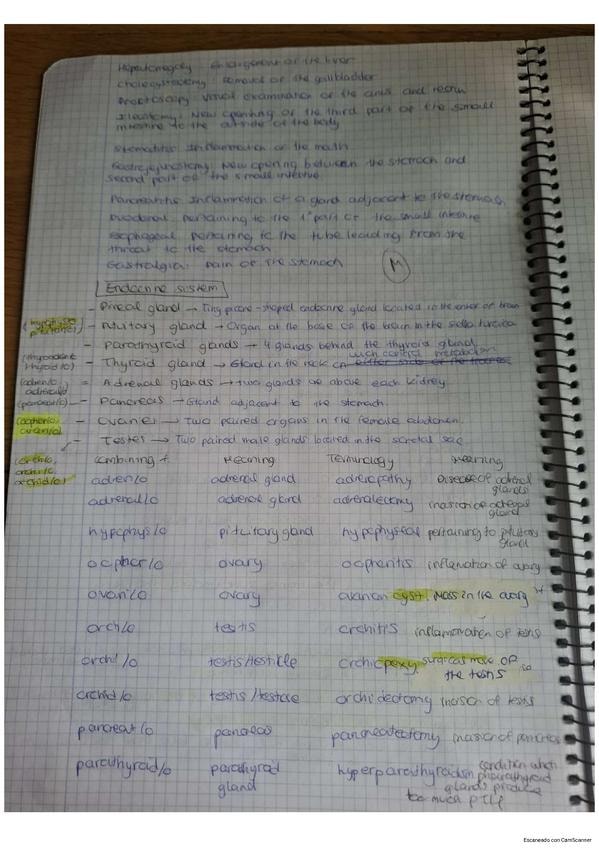 Hepatomegaly: Enlargement of the liver
Cholecystectomy: removal of the gallbladder
Proctoscopy: visual examination of the anus and rectum
Ileostomy: New opening of the third part of the small
intestine to the outside of the body
Stomatitis: Inflammation of the mouth
Gastrojejunostomy: New opening between the stomach and
second part of the small intestine
Pancreatitis: Inflammation of a gland adjacent to the stomach
Duodenal: pertaining to the 1° part of the small intestine
Esophageal: pertaining to the tube leading from the
throat to the stomach
Gastralgia: pain of the stomach
M
Endocrine system
- Pineal gland → Tiny pinecone-shaped endocrine gland located in the center of brain
- Pituitary gland → Organ at the base of the brain in the sella turcica
- Parathyroid glands → 4 glands behind the thyroid gland
which control metabolism
- Thyroid gland → Gland in the neck on either side of the trachea
= Adrenal glands → two glands above each kidney
- Pancreas → Gland adjacent to the stomach.
- Ovaries → Two paired organs in the female abdomen
- Testes → Two paired male glands located in the scrotal sac
Combining f. Meaning Terminology Meaning
adren/o adrenal gland adrenopathy Disease of adrenal
glands
adrenal/o adrenal gland adrenalectomy incision of adrenal
gland
hypophys/o pituitary gland hypophyseal pertaining to pituitary
gland
oophor/o ovary oophoritis inflammation of ovary
ovari/o ovary ovarian cyst. Mass in the ovary
orch/o testis orchitis inflammation of testis
orchi/o testis/testicle orchiopexy. surgical move of
the testis
orchid/o testis/testicle orchidectomy incision of testis
pancreat/o pancreas pancreatectomy incision of pancreas
parathyroid/o parathyroid hyperparathyroidism condition when
gland parathyroid
glands produce
too much PTH
Escaneado con CamScanner